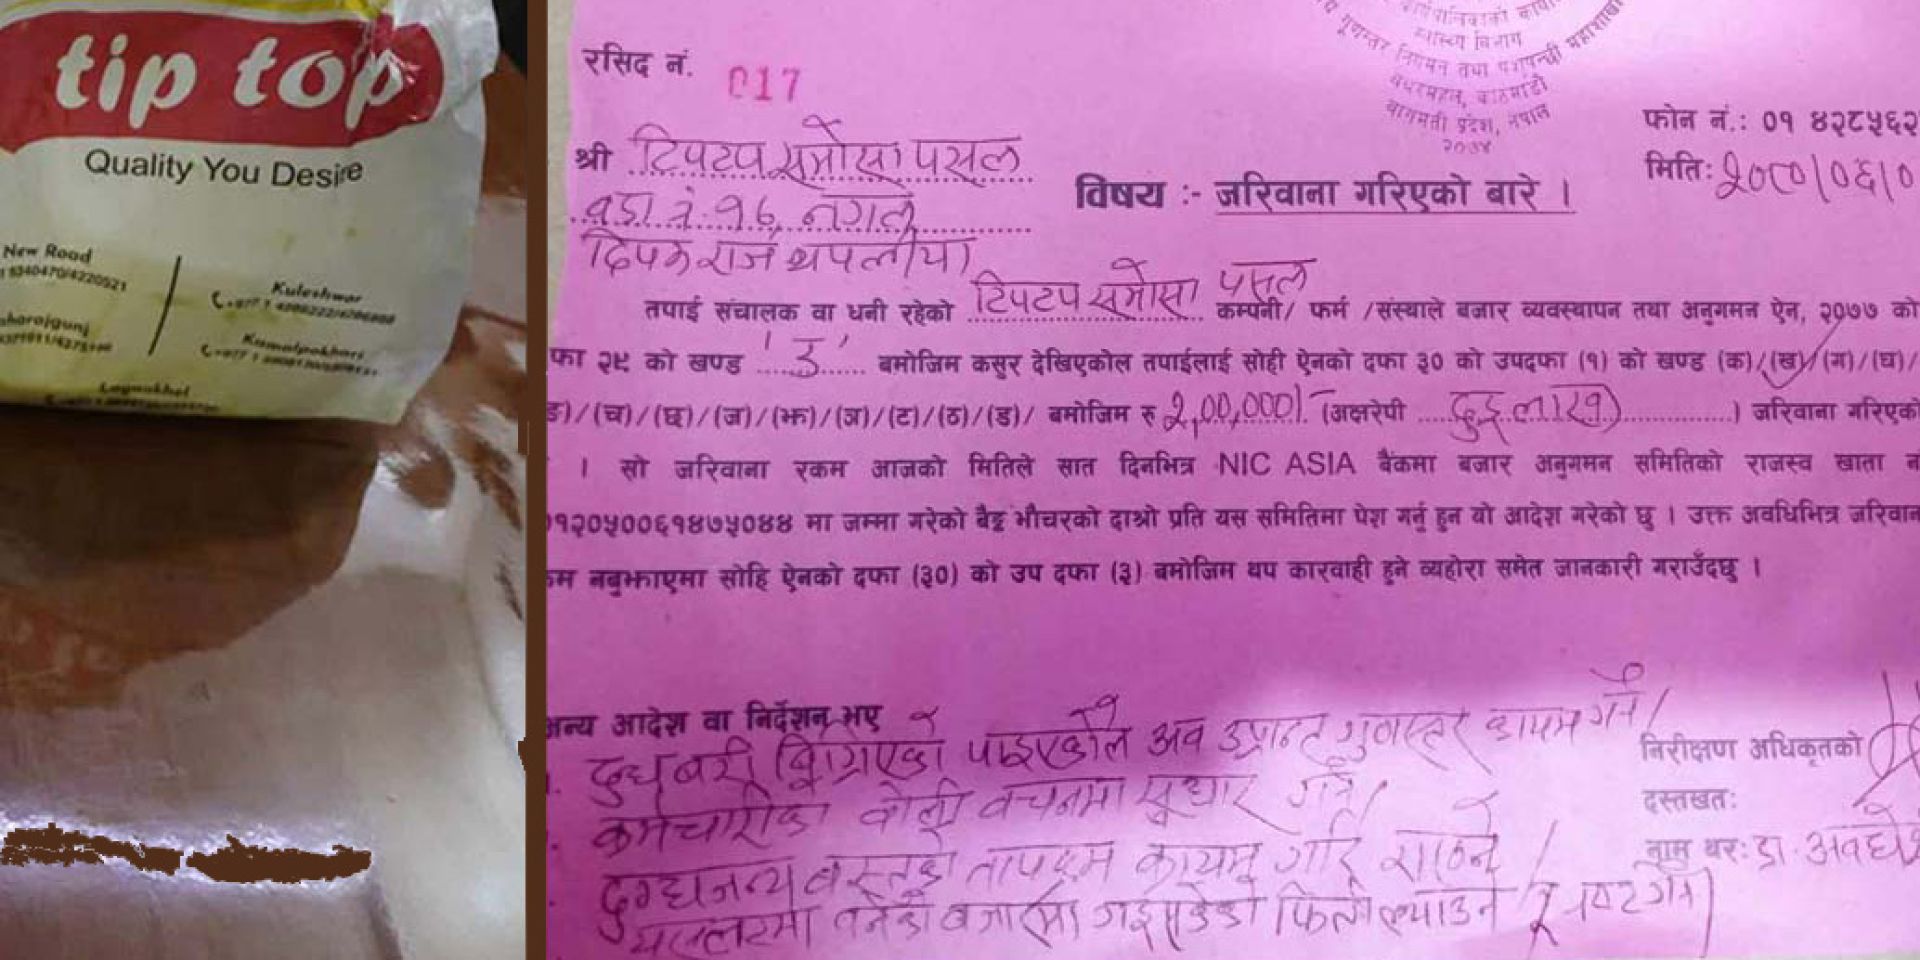 tip top
Quality You Desire
New Road
Kuleshwor
Kamalpokhari
रसिद नं. 017
स्वास्थ्य विभाग
काठमाडौं
बागमती प्रदेश, नेपाल
२०७४
फोन नं.: ०१ ४२८५६२
मिति: २०८०/०६/०
श्री टिपटप समोसा पसल
विषय :- जरिवाना गरिएको बारे ।
वडा नं. १६, नगल
दिपक राज थपलीया
तपाई संचालक वा धनी रहेको टिपटप समोसा पसल कम्पनी/ फर्म /संस्थाले बजार व्यवस्थापन तथा अनुगमन ऐन, २०७७ को
फा २९ को खण्ड 'ड' बमोजिम कसुर देखिएकोल तपाईलाई सोही ऐनको दफा ३० को उपदफा (१) को खण्ड (क)/(ख)/(ग)/(घ)/
ङ)/(च)/(छ)/(ज)/(झ)/(ञ)/(ट)/(ठ)/(ड)/ बमोजिम रु २,००,०००/- (अक्षरेपी दुई लाख) जरिवाना गरिएको
। सो जरिवाना रकम आजको मितिले सात दिनभित्र NIC ASIA बैंकमा बजार अनुगमन समितिको राजस्व खाता न
१२०५००६१४७५०४४ मा जम्मा गरेको बैङ्क भौचरको दाश्रो प्रति यस समितिमा पेश गर्नु हुन यो आदेश गरेको छु । उक्त अवधिभित्र जरिवान
नबुझाएमा सोहि ऐनको दफा (३०) को उप दफा (३) बमोजिम थप कारवाही हुने व्यहोरा समेत जानकारी गराउँदछु ।
अन्य आदेश वा निर्देशन भए
दुधबरी बिग्रिएको पाइएकोले अब उप्रान्त गुणस्तर कायम गर्ने ।
निरीक्षण अधिकृतको
दस्तखत:
कर्मचारीको बोली वचनमा सुधार गर्ने ।
नाम थर: डा. अवधेश
दुग्धजन्य वस्तुको तापक्रम कायम गरि राख्ने ।
बनेको बजारमा गइसकेको फिर्ता ल्याउने